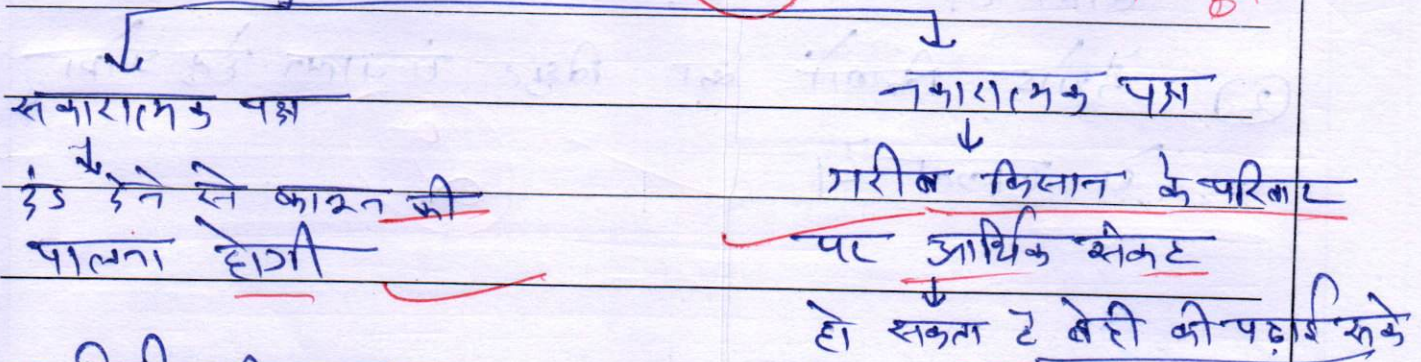 सकारात्मक पक्ष
दंड देने से कानून की
पालना होगी
नकारात्मक पक्ष
गरीब किसान के परिवार
पर आर्थिक संकट
हो सकता है बेटी की पढ़ाई रूके